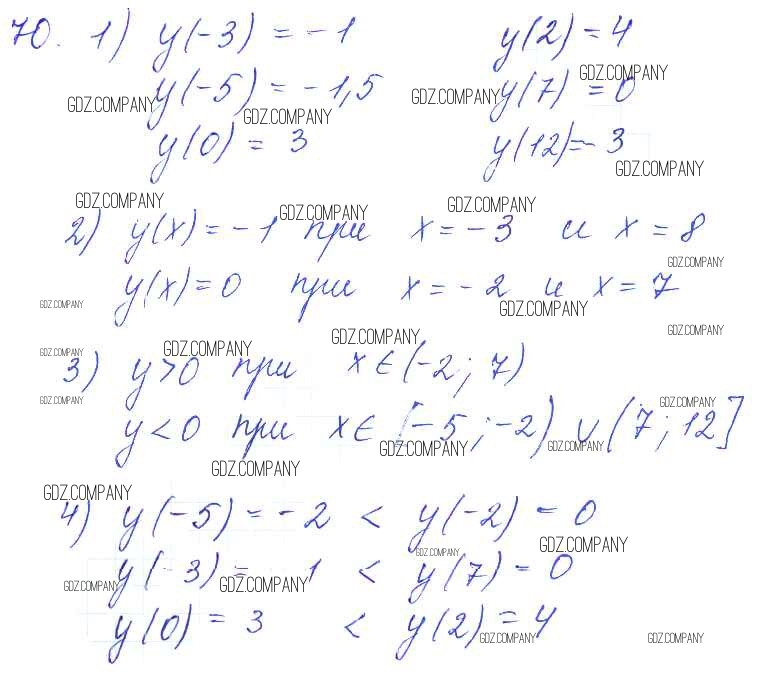 70. 1) y(-3) = -1 y(2) = 4
GDZ.COMPANY
GDZ.COMPANY y(-5) = -1,5 GDZ.COMPANY y(7) = 0
GDZ.COMPANY
y(0) = 3 y(12) = -3
GDZ.COMPANY
GDZ.COMPANY GDZ.COMPANY GDZ.COMPANY
2) y(x) = -1 при x = -3 и x = 8
GDZ.COMPANY
y(x) = 0 при x = -2 и x = 7
GDZ.COMPANY GDZ.COMPANY
GDZ.COMPANY GDZ.COMPANY
GDZ.COMPANY GDZ.COMPANY
3) y > 0 при x ∈ (-2; 7)
GDZ.COMPANY GDZ.COMPANY
y < 0 при x ∈ [-5; -2) ∪ (7; 12]
GDZ.COMPANY GDZ.COMPANY
GDZ.COMPANY
GDZ.COMPANY
4) y(-5) = -2 < y(-2) = 0
GDZ.COMPANY GDZ.COMPANY
y(-3) = -1 < y(7) = 0
GDZ.COMPANY GDZ.COMPANY
y(0) = 3 < y(2) = 4
GDZ.COMPANY GDZ.COMPANY